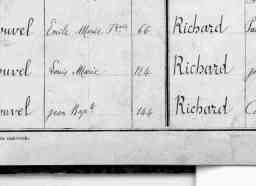 ouvel Emile Marie 66 Richard
ouvel Louis Marie 124 Richard
ouvel Jean Bapt 144 Richard